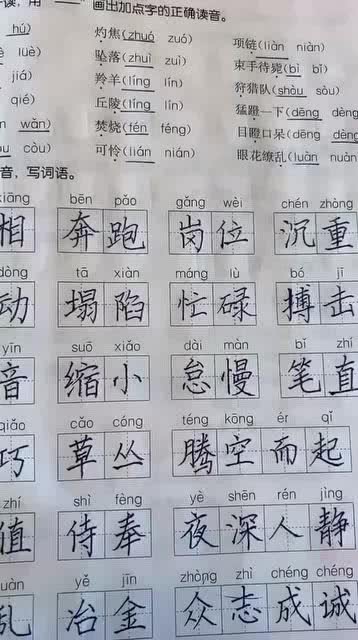 读，用“——”画出加点字的正确读音。
hú) 灼焦(zhuó zuó) 项链(liàn niàn)
lüè) 坠落(zhuì zuì) 束手待毙(bì bǐ)
jiá) 羚羊(líng lín) 狩猎队(shòu sòu)
qié) 丘陵(líng lín) 猛蹬一下(dēng dèng
wǎn) 焚烧(fén féng) 目瞪口呆(dēng dèng
òu còu) 可怜(lián nián) 眼花缭乱(luàn nuàn
音，写词语。
xiāng bēn pǎo gǎng wèi chén zhòng
相 奔跑 岗位 沉重
dòng tā xiàn máng lù bó jī
动 塌陷 忙碌 搏击
yīn suō xiǎo dài màn bǐ zhí
音 缩小 怠慢 笔直
qiǎo cǎo cóng téng kōng ér qǐ
巧 草丛 腾空而起
zhí shì fèng yè shēn rén jìng
值 侍奉 夜深人静
uàn yě jīn zhòng zhì chéng chéng
乱 冶金 众志成诚